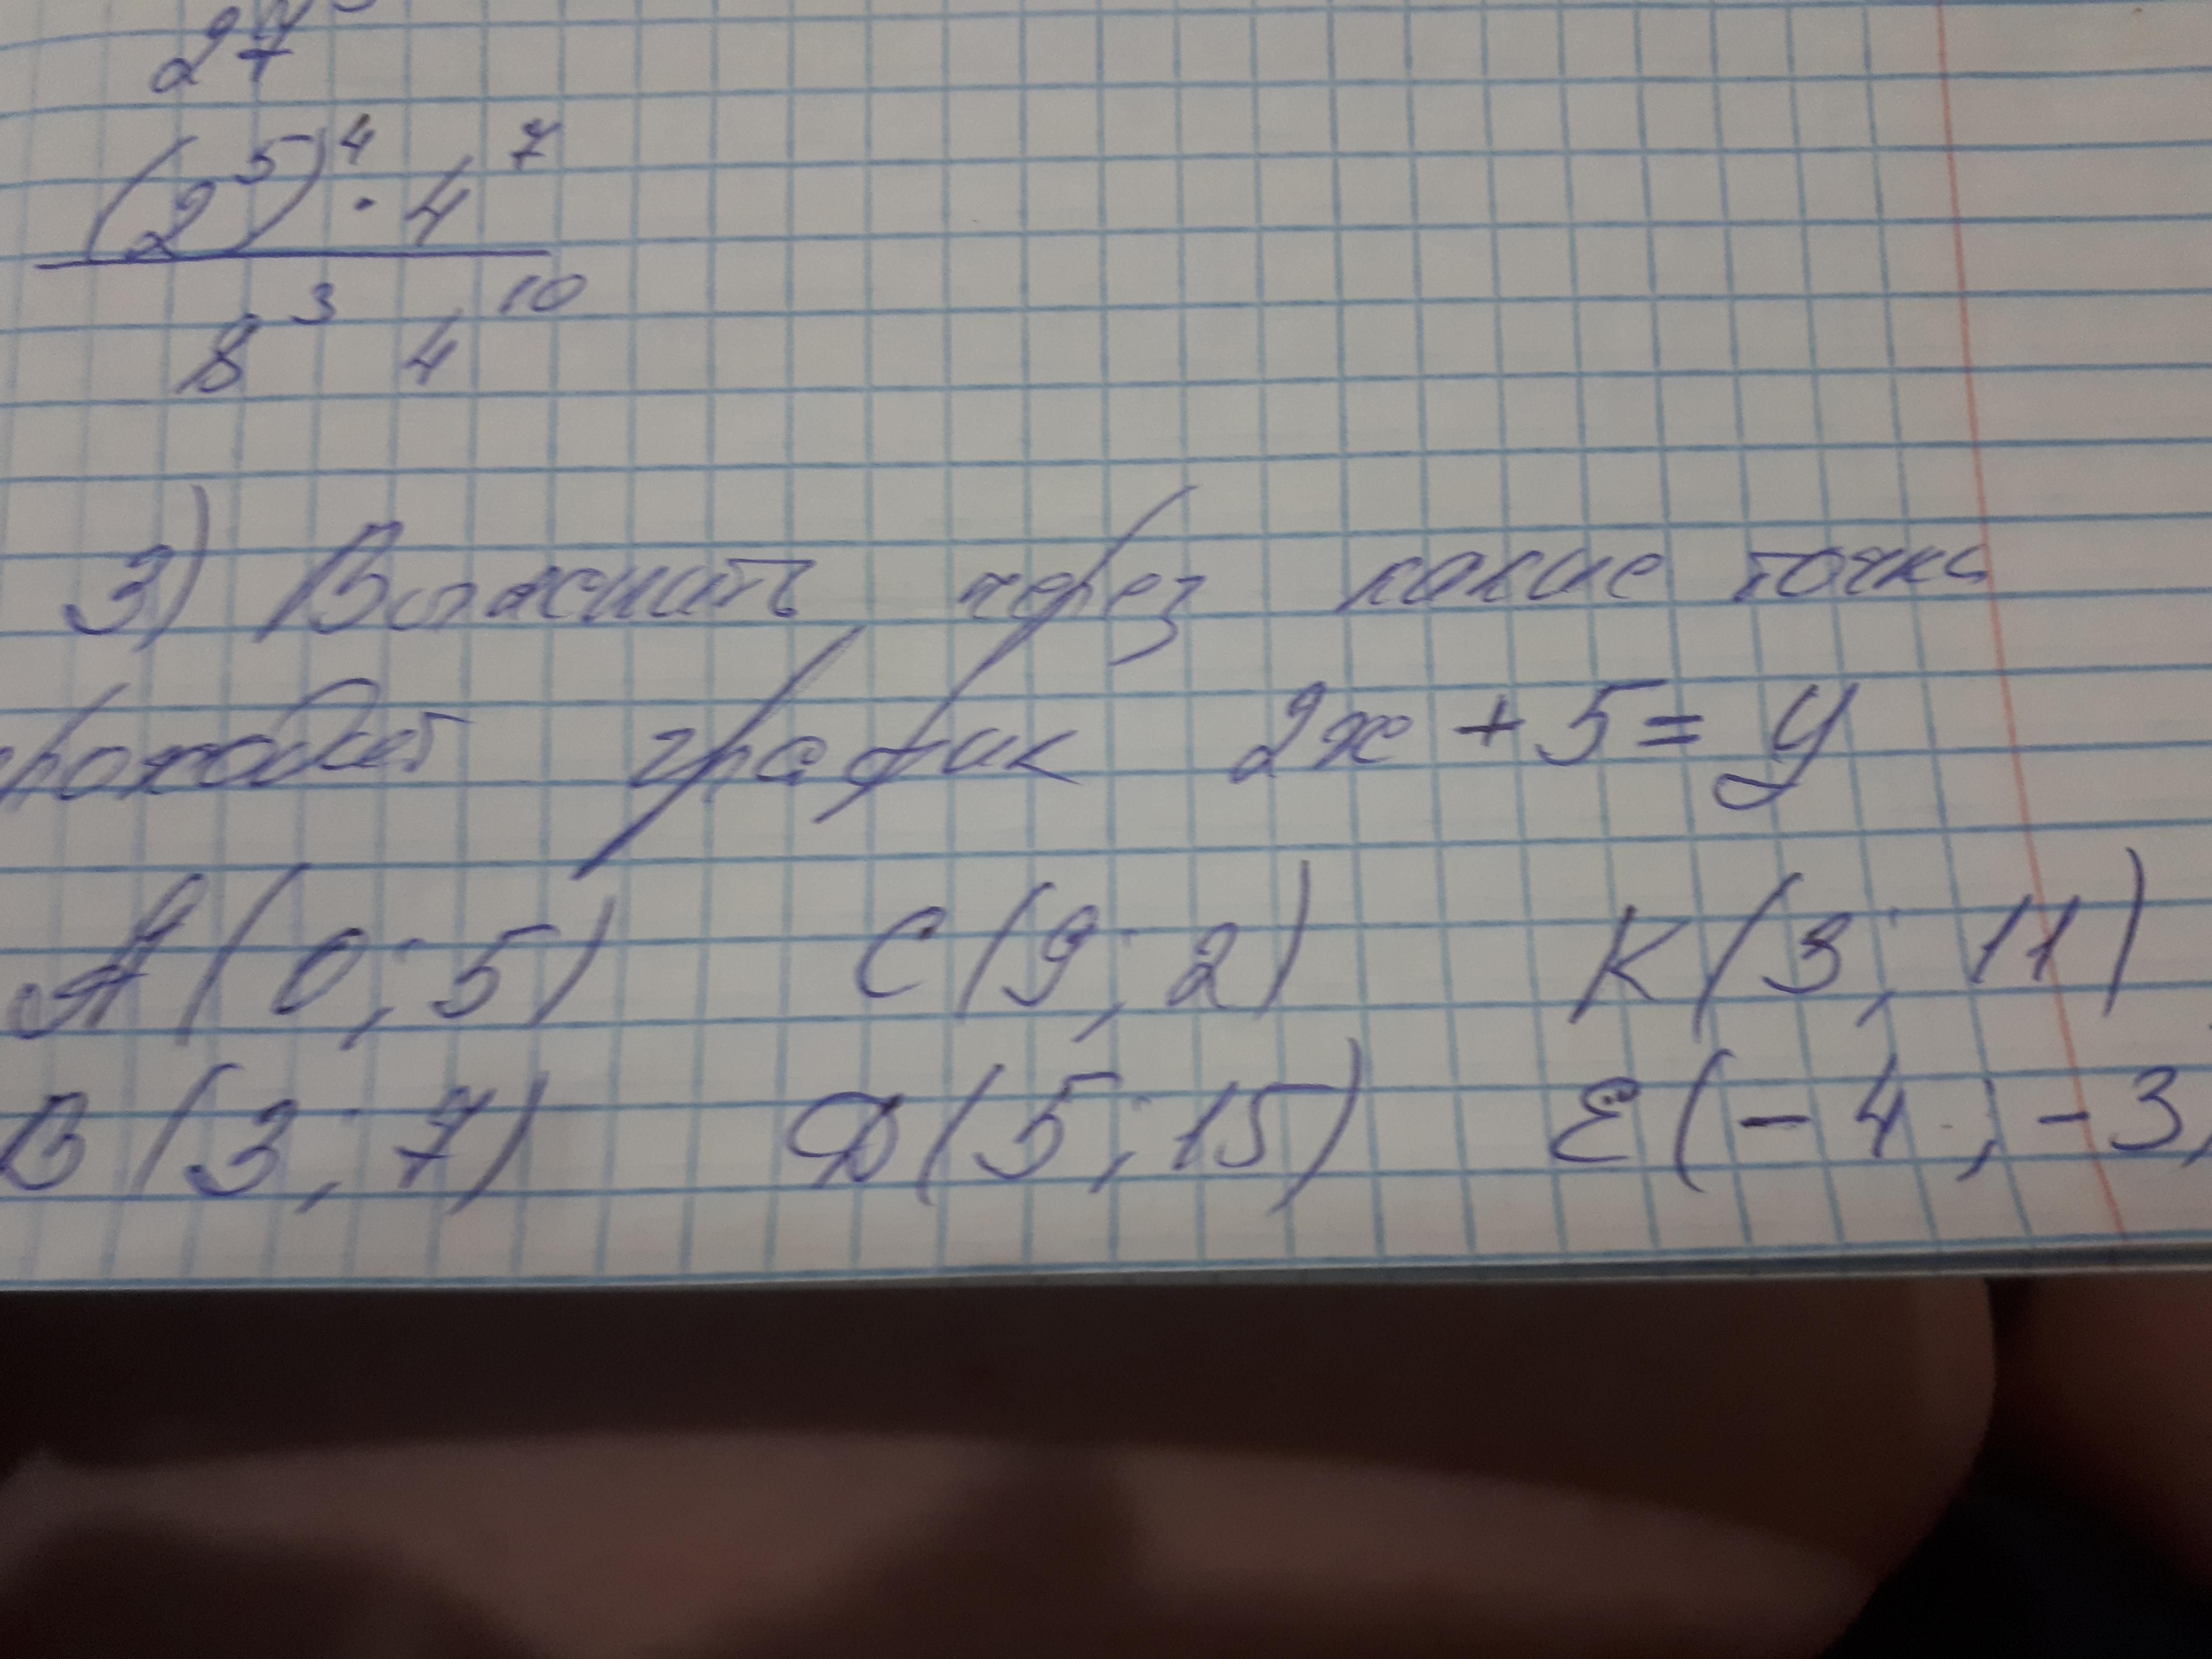 27
(2⁵)⁴ · 4⁷
8³ 4¹⁰
3) Выяснить через какие точки
проходит график 2x + 5 = y
A(0; 5) C(9; 2) K(3; 11)
B(3; 7) D(5; 15) E(-4; -3)